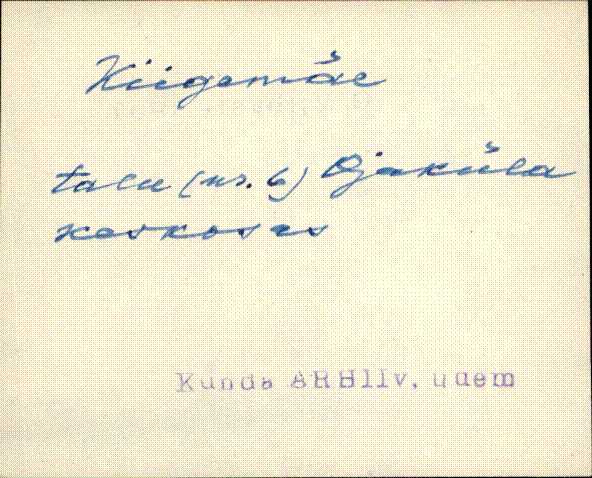 Kiigemäe
talu (nr. 6) Ojaküla
keskosas
Kunda ARHIIV, uuem